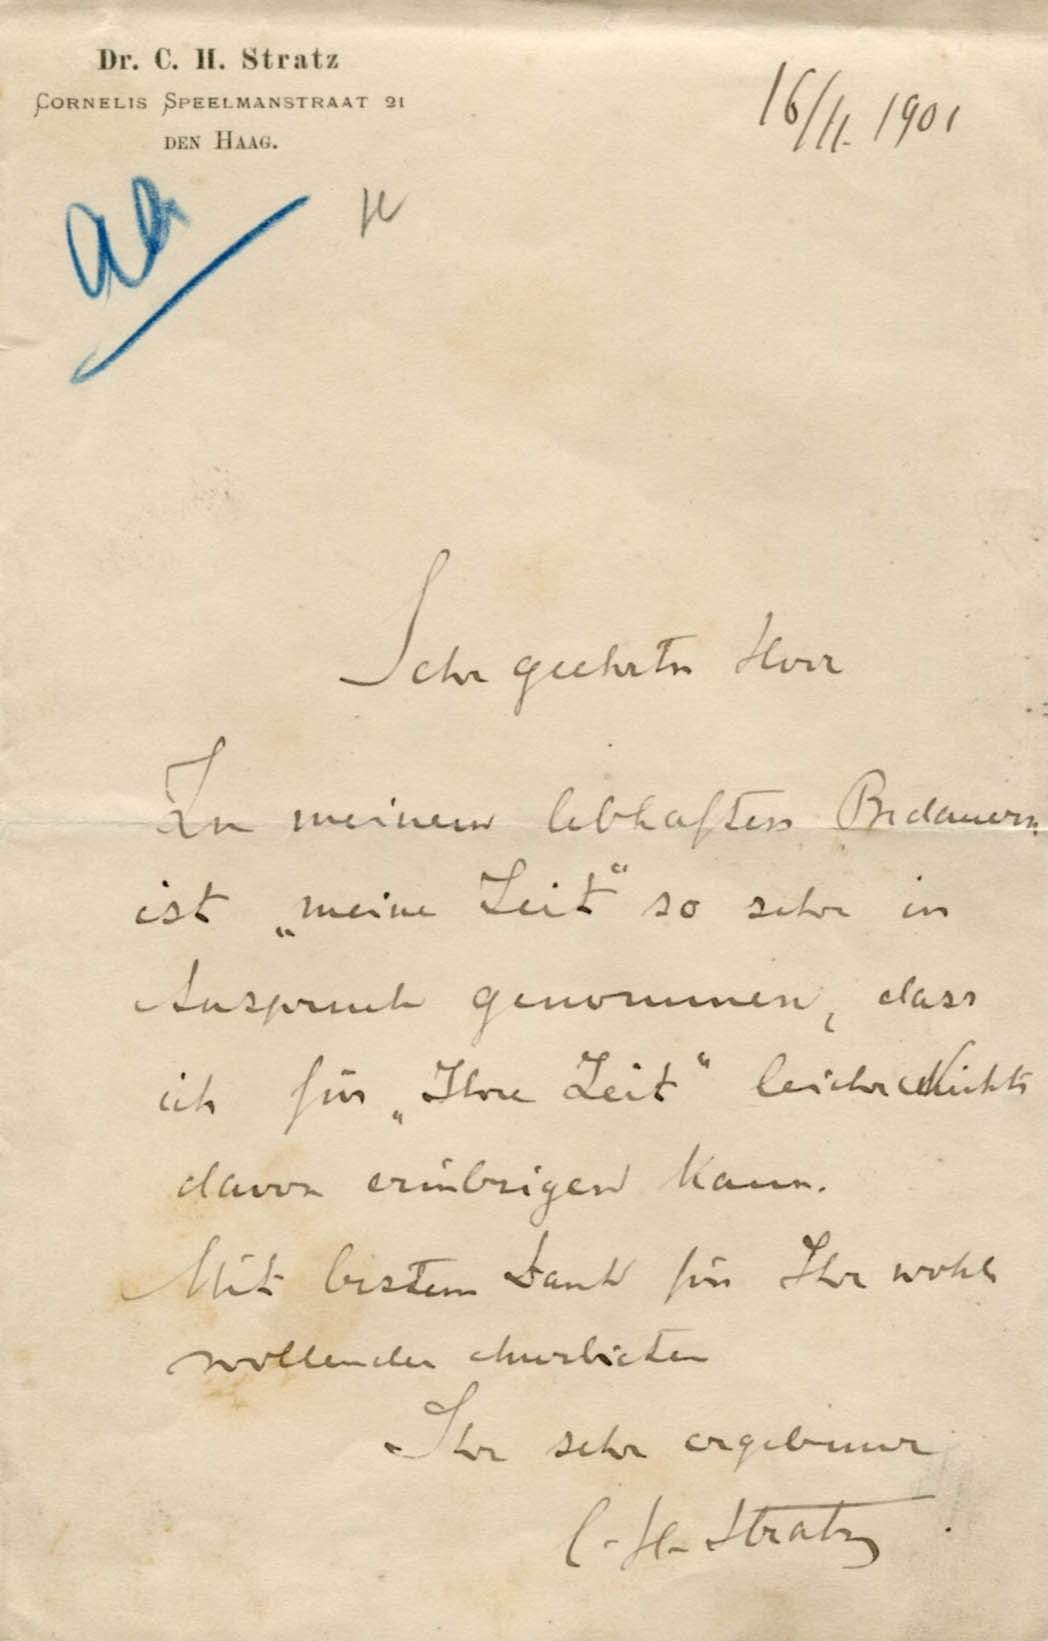 Dr. C. H. Stratz
CORNELIS SPEELMANSTRAAT 21
DEN HAAG.
16/II. 1901
Sehr geehrter Herr
Zu meinem lebhaften Bedauern
ist „meine Zeit“ so sehr in
Anspruch genommen, dass
ich für „Ihre Zeit“ leider Nichts
davon erübrigen kann.
Mit bestem Dank für Ihr wohl
wollendes Anerbieten
Ihr sehr ergebener
C. H. Stratz